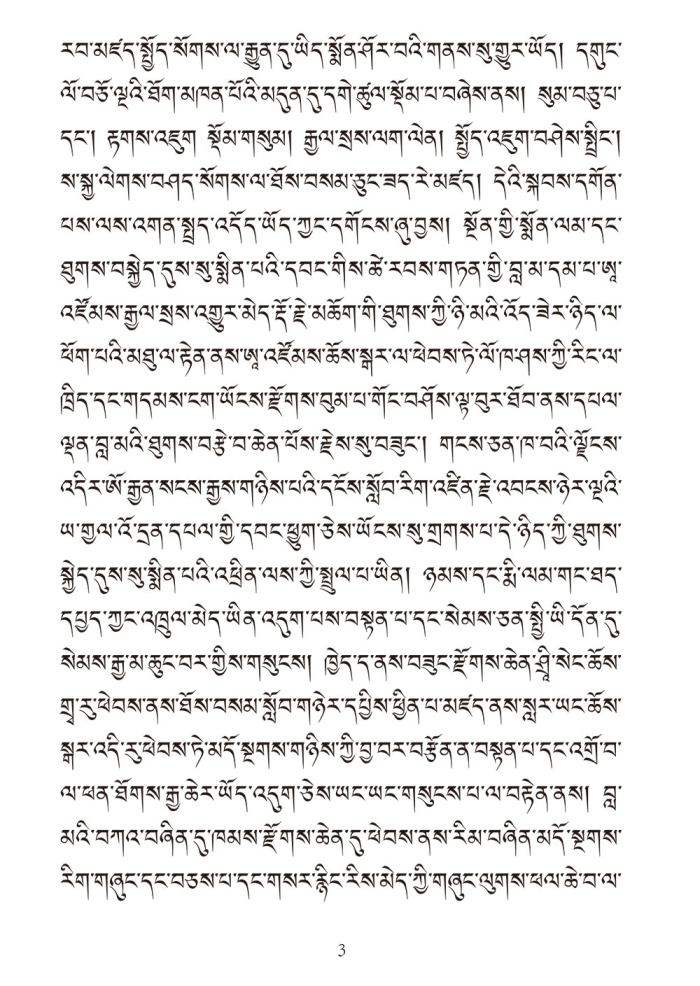 རབ་མཛད་སྤྱོད་སོགས་ལ་རྒྱུན་དུ་ཡིད་སྨོན་ཤོར་བའི་གནས་སུ་གྱུར་ཡོད། དགུང་
ལོ་བཅོ་ལྔའི་ཐོག་མཁན་པོའི་མདུན་དུ་དགེ་ཚུལ་སྡོམ་པ་བཞེས་ནས། སུམ་བཅུ་པ་
དང་། རྟགས་འཇུག སྡོམ་གསུམ། རྒྱལ་སྲས་ལག་ལེན། སྤྱོད་འཇུག་བཤེས་སྤྲིང་།
ས་སྐྱ་ལེགས་བཤད་སོགས་ལ་ཐོས་བསམ་ཅུང་ཟད་རེ་མཛད། དེའི་སྐབས་དགོན་
པས་ལས་འགན་སྤྲད་འདོད་ཡོད་ཀྱང་དགོངས་ཞུ་བྱས། སྔོན་གྱི་སྨོན་ལམ་དང་
ཐུགས་བསྐྱེད་དུས་སུ་སྨིན་པའི་དབང་གིས་ཚེ་རབས་གཏན་གྱི་བླ་མ་དམ་པ་ཨ་
འཛོམས་རྒྱལ་སྲས་འགྱུར་མེད་རྡོ་རྗེ་མཆོག་གི་ཐུགས་ཀྱི་ཉི་མའི་འོད་ཟེར་ཉིད་ལ་
ཕོག་པའི་མཐུ་ལ་རྟེན་ནས་ཨ་འཛོམས་ཆོས་སྒར་ལ་ཕེབས་ཏེ་ལོ་ཁ་ཤས་ཀྱི་རིང་ལ་
ཁྲིད་དང་གདམས་ངག་ཡོངས་རྫོགས་བུམ་པ་གང་བཤོས་ལྟ་བུར་ཐོབ་ནས་དཔལ་
ལྡན་བླ་མའི་ཐུགས་བརྩེ་བ་ཆེན་པོས་རྗེས་སུ་བཟུང་། གངས་ཅན་ཁ་བའི་ལྗོངས་
འདིར་ཨོ་རྒྱན་སངས་རྒྱས་གཉིས་པའི་དངོས་སློབ་རིག་འཛིན་རྗེ་འབངས་ཉེར་ལྔའི་
ཡ་གྱལ་འོ་དྲན་དཔལ་གྱི་དབང་ཕྱུག་ཅེས་ཡོངས་སུ་གྲགས་པ་དེ་ཉིད་ཀྱི་ཐུགས་
སྐྱེད་དུས་སུ་སྨིན་པའི་འཕྲིན་ལས་ཀྱི་སྤྲུལ་པ་ཡིན། ཉམས་དང་རྨི་ལམ་གང་ཐད་
དཔྱད་ཀྱང་འཁྲུལ་མེད་ཡིན་འདུག་པས་བསྟན་པ་དང་སེམས་ཅན་སྤྱི་ཡི་དོན་དུ་
སེམས་རྒྱ་མ་ཆུང་བར་གྱིས་གསུངས། ཁྱེད་ད་ནས་བཟུང་རྫོགས་ཆེན་ཤྲཱི་སེང་ཆོས་
གྲྭ་རུ་ཕེབས་ནས་ཐོས་བསམ་སློབ་གཉེར་དཔྱིས་ཕྱིན་པ་མཛད་ནས་སླར་ཡང་ཆོས་
སྒར་འདི་རུ་ཕེབས་ཏེ་མདོ་སྔགས་གཉིས་ཀྱི་བྱ་བར་བརྩོན་ན་བསྟན་པ་དང་འགྲོ་བ་
ལ་ཕན་ཐོགས་རྒྱ་ཆེར་ཡོད་འདུག་ཅེས་ཡང་ཡང་གསུངས་པ་ལ་བརྟེན་ནས། བླ་
མའི་བཀའ་བཞིན་དུ་ཁམས་རྫོགས་ཆེན་དུ་ཕེབས་ནས་རིམ་བཞིན་མདོ་སྔགས་
རིག་གཞུང་དང་བཅས་པ་དང་གསར་རྙིང་རིས་མེད་ཀྱི་གཞུང་ལུགས་ཕལ་ཆེ་བ་ལ་
3